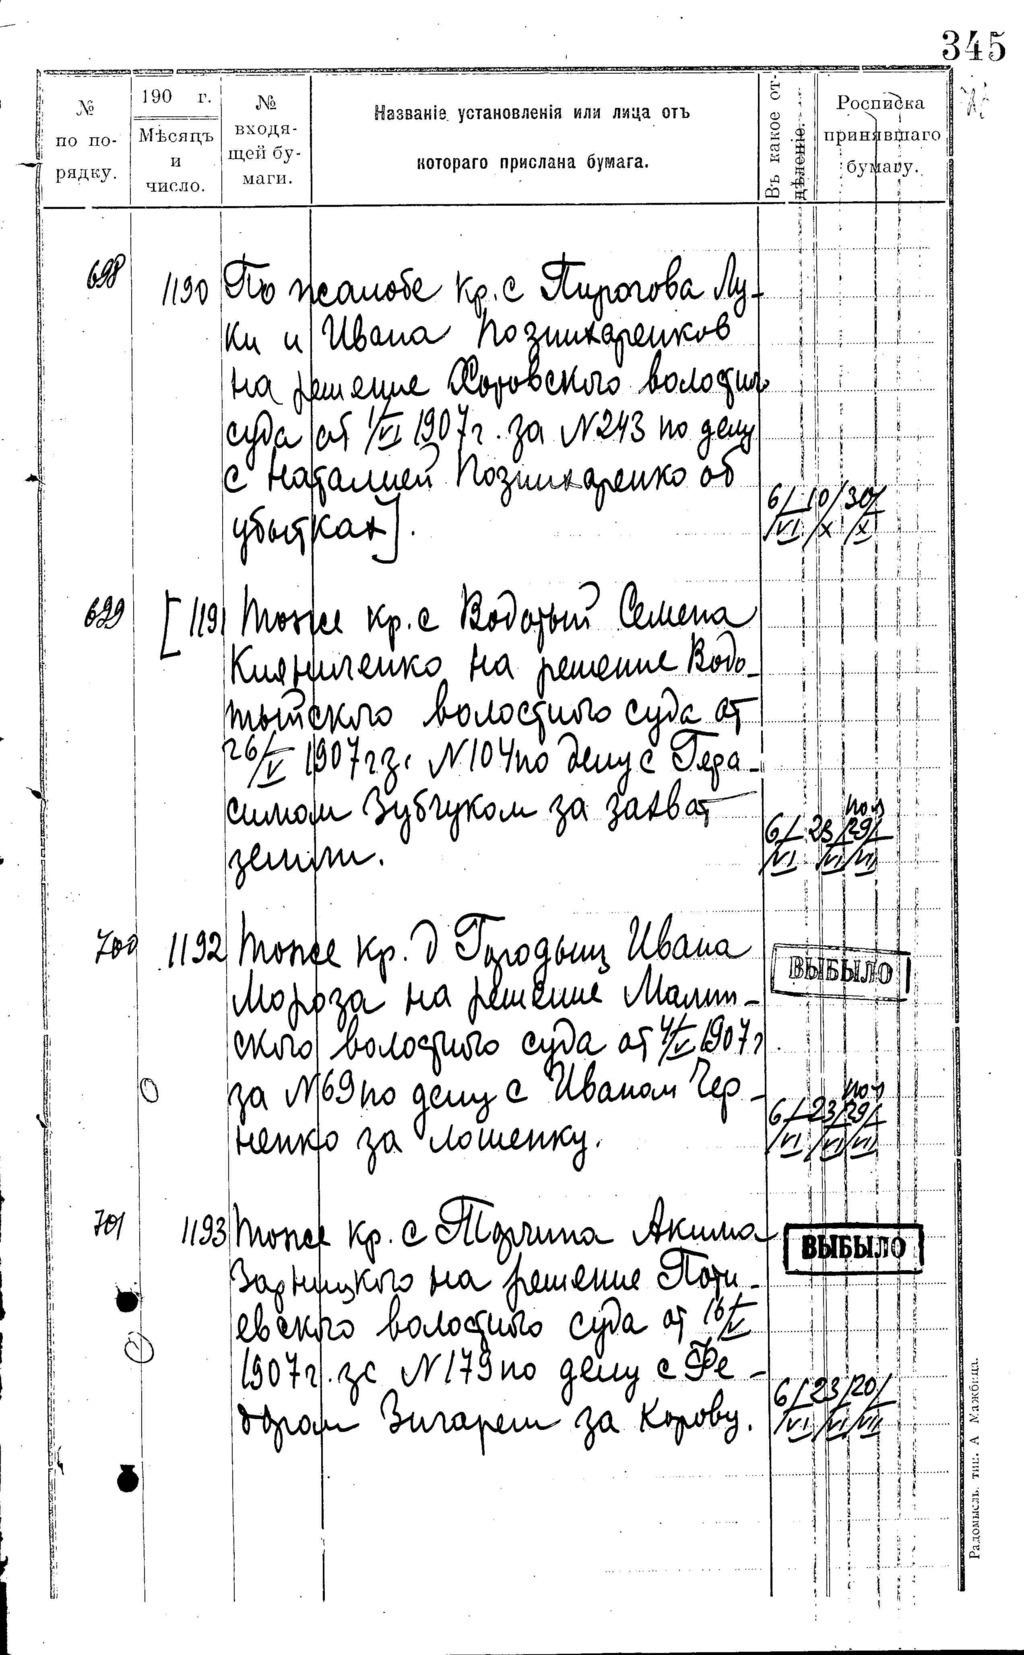 345
№ по порядку.
190 г. Мѣсяцъ и число.
№ входящей бумаги.
Названіе установленія или лица отъ
котораго прислана бумага.
Въ какое отдѣленіе.
Росписка принявшаго бумагу.
698 1190 По жалобе кр. с Пирогова Лу-
ки и Ивана Познихаренков
на решение волостного
суда от 1/VI 1907 г. за N 243 по делу
с Наталией Познихаренко об
убытках].
6/VI 10/X 30/X
699 [1191 Тоже кр. с Водотый Семена
на решение Водо-
тыйского волостного суда от
26/V 1907 г за N 104 по делу с Гера-
симом Зубчуком за захват
земли.
6/VI 23/VI 29/VI
700 1192 Тоже кр. д Городыщ Ивана
Мороза на решение Малин-
ского волостного суда от 4/V 1907 г
за N 69 по делу с Иваном Чер-
ненко за лошенку.
ВЫБЫЛО
6/VI 23/VI 29/VI
701 1193 Тоже кр. с Торчина Акима
Зарницкого на решение Поти-
евского волостного суда от 16/V
1907 г. за N 179 по делу с Фе-
дором Зигарем за корову.
ВЫБЫЛО
6/VI 23/VI 20/VII
Радомысль. тип. А Мажбица.